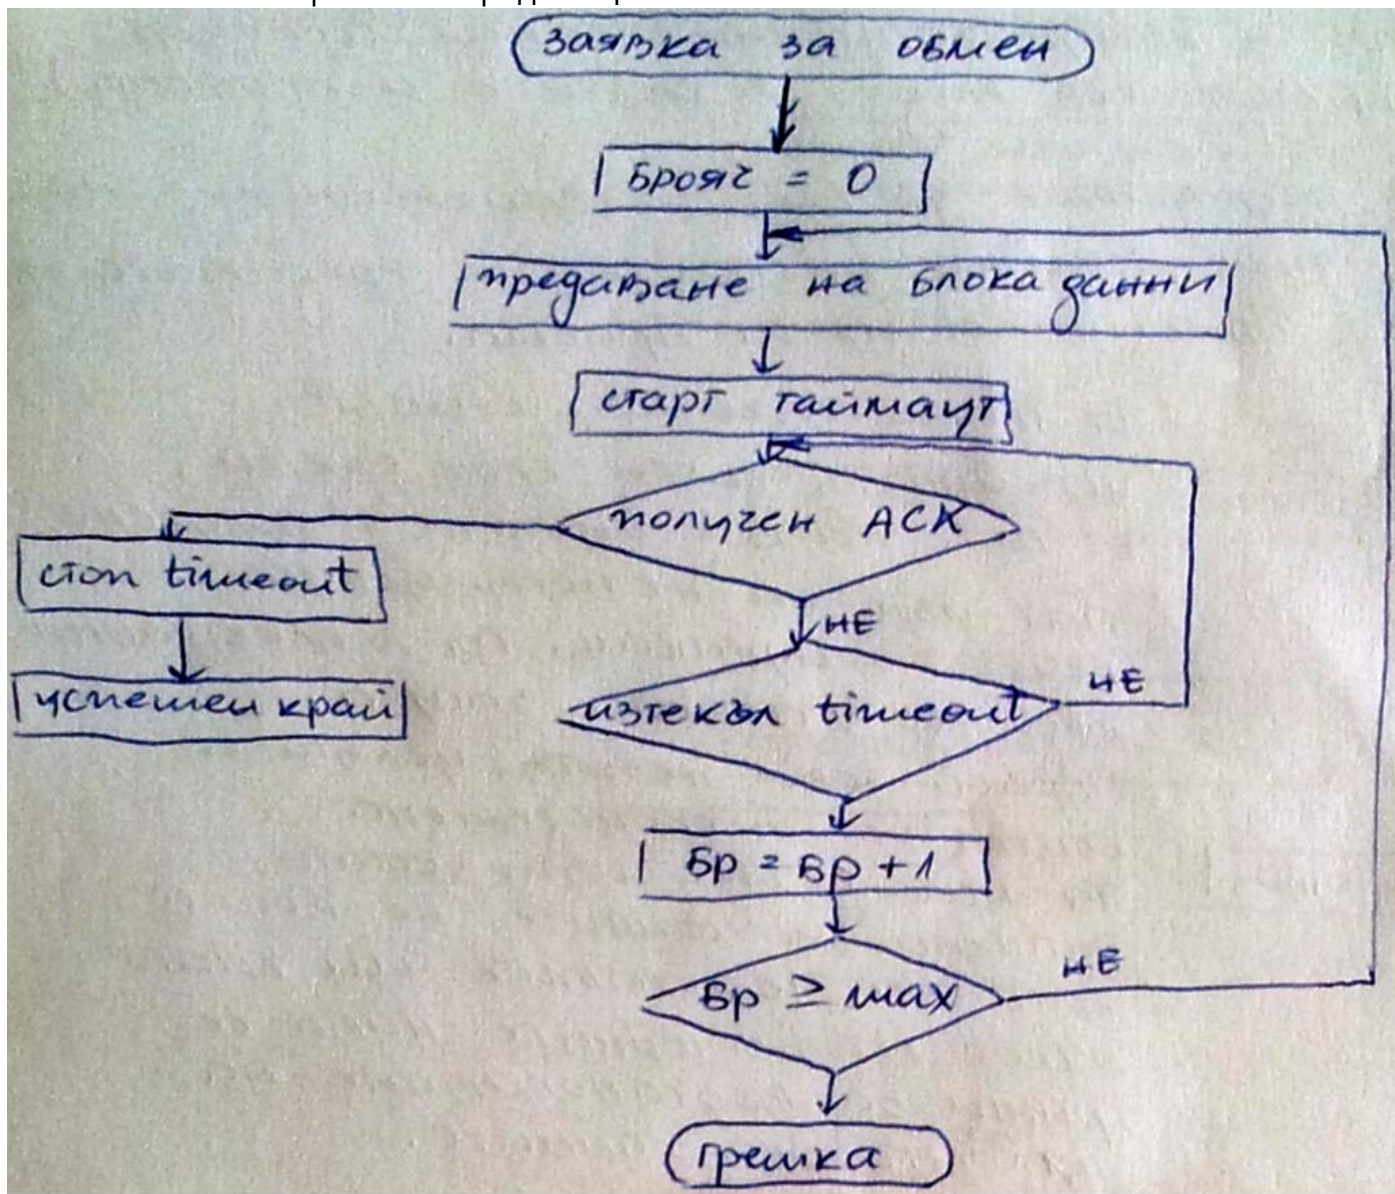 заявка за обмен
Брояч = 0
предаване на блока данни
старт таймаут
получен ACK
стоп timeout
НЕ
успешен край
изтекъл timeout
НЕ
Бр = Бр + 1
Бр ≥ max
НЕ
грешка